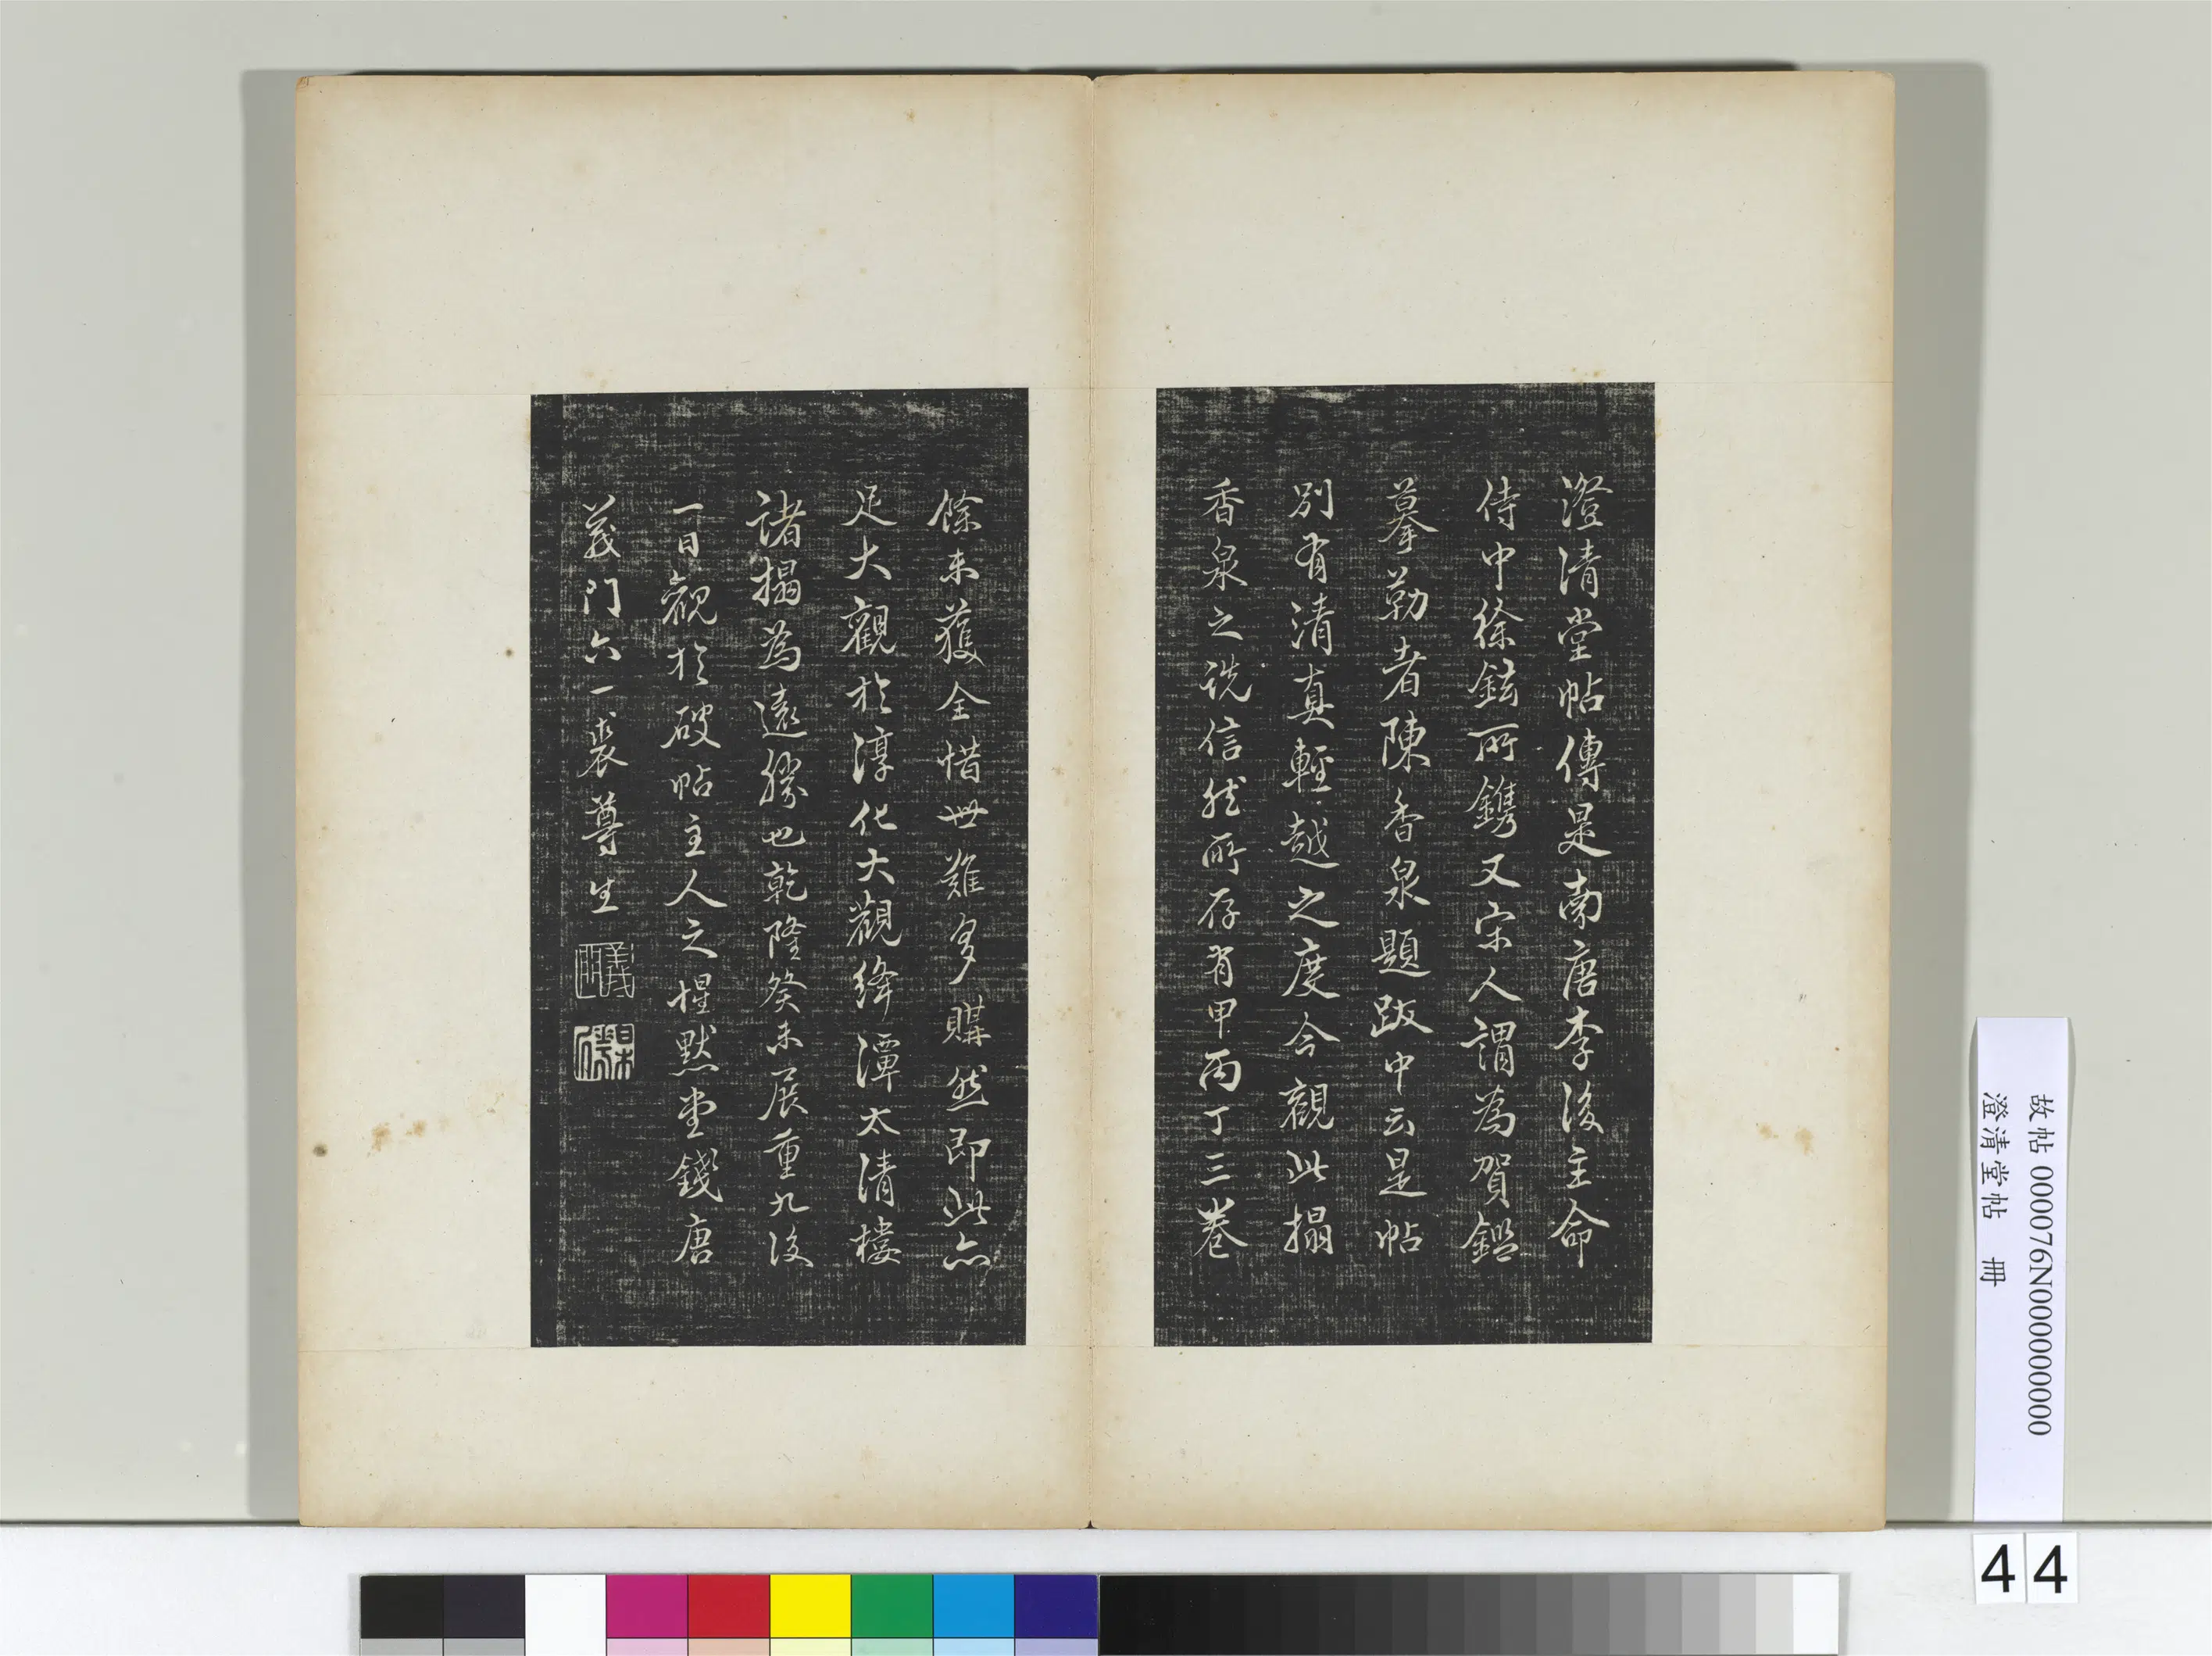 澄清堂帖傳是南唐李後主命
侍中徐鉉所鐫又宋人謂為賀鑑
摹勒者陳香泉題跋中云是帖
別有清真輕越之度今觀此搨
香泉之說信然所存有甲丙丁三卷
餘未獲全惜世難多購然即此亦
足大觀於淳化大觀絳潭太清樓
諸搨為遠勝也乾隆癸未展重九後
一日觀於破帖主人之惺默堂錢唐
義門六一裘尊生
故帖 000076N000000000
澄清堂帖 冊
44